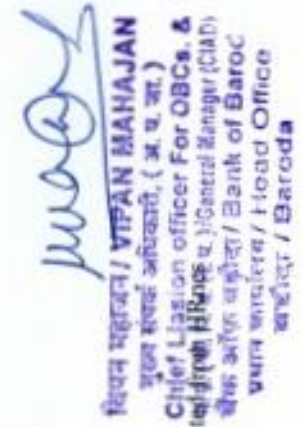 विपन महाजन/ VIPAN MAHAJAN
मुख्य संपर्क अधिकारी, ( अ. प. जा. )
Chief Liasion officer For OBCs, &
General Manager (CIAD)
बैंक ऑफ बड़ौदा/ Bank of Baroc
प्रधान कार्यालय/ Head Office
बड़ौदा / Baroda